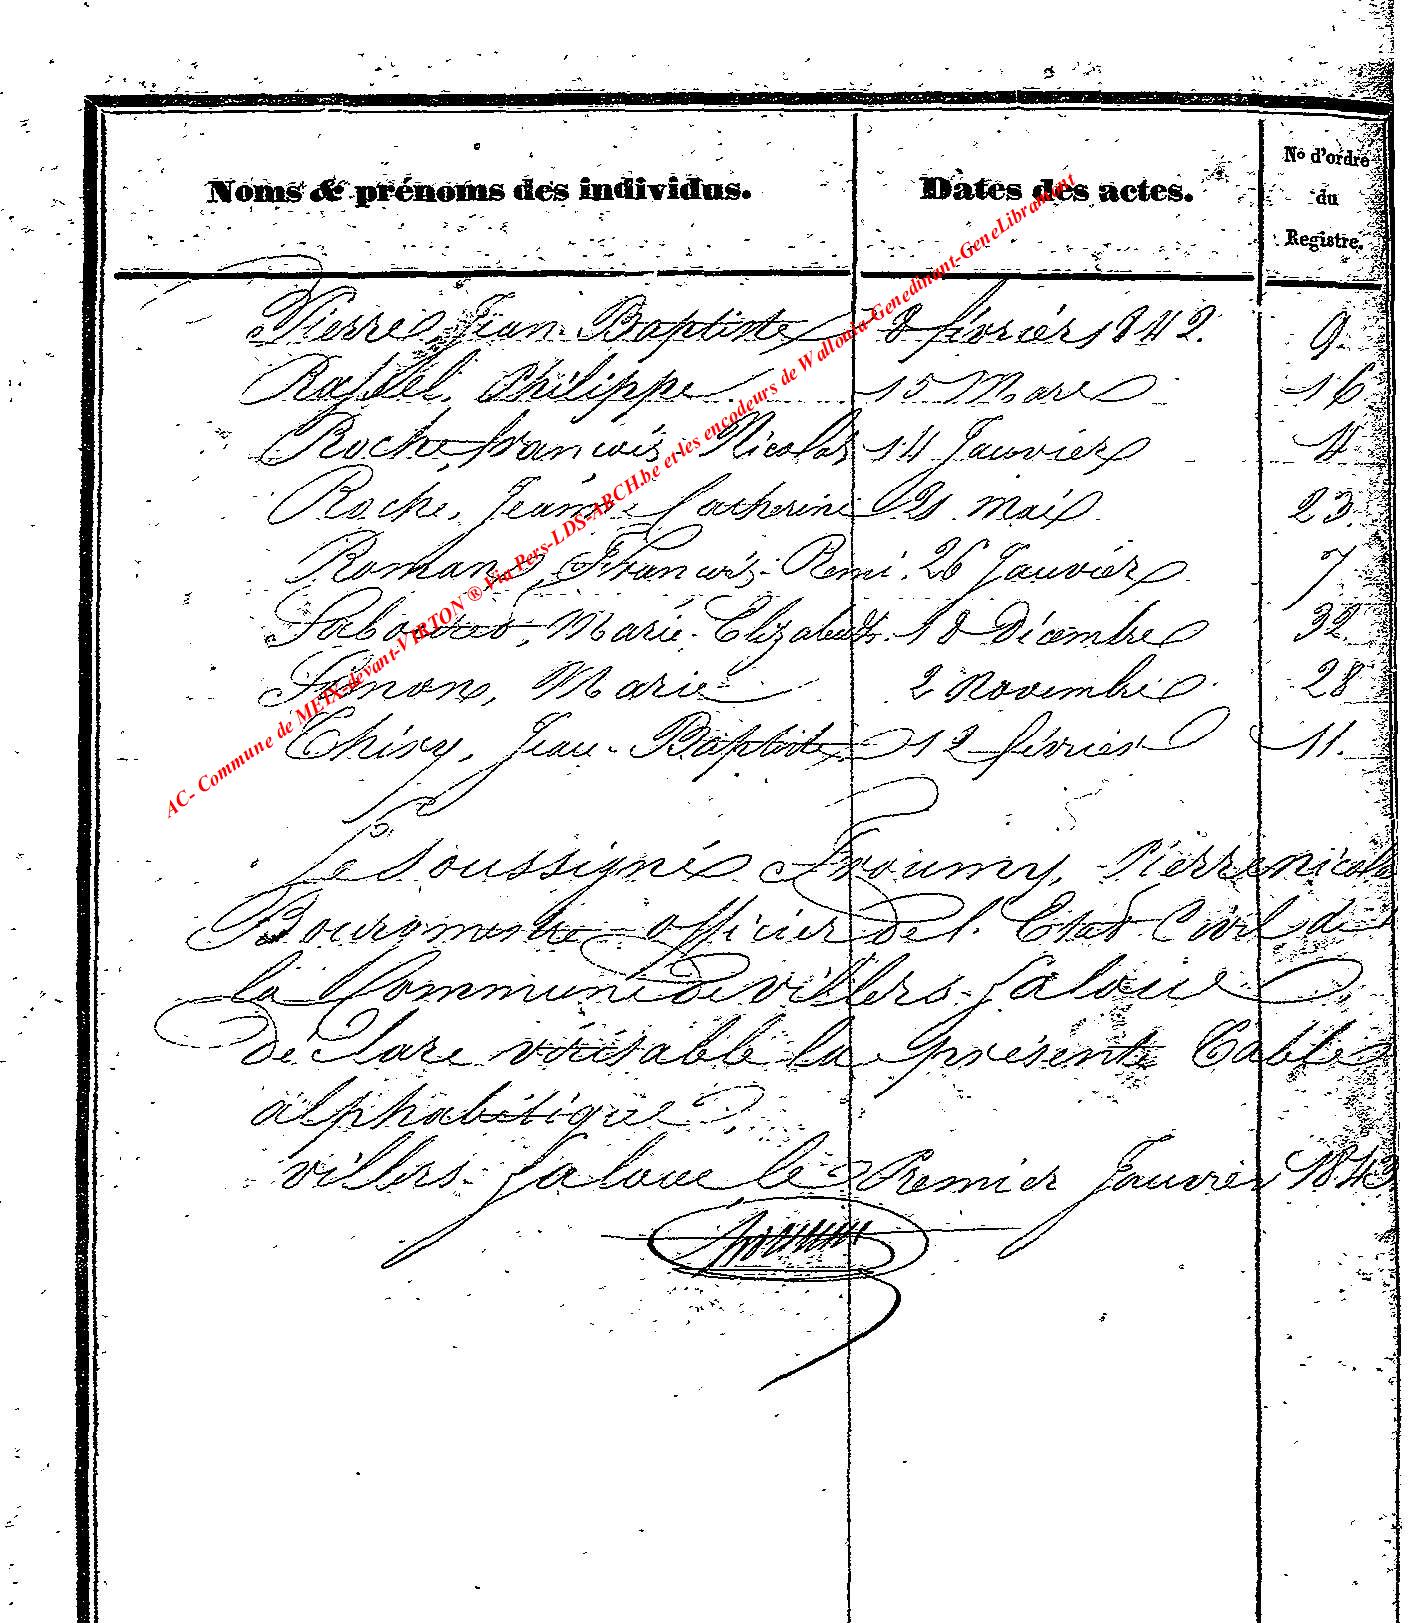 Noms & prénoms des individus. Dates des actes. No d'ordre du Registre.
Pierre, Jean-Baptiste 8 février 1842. 9.
Philippe 15 Mars 16
Roche françois Nicolas 14 Janvier 4
Roche, Jeanne Catherine 21 mai 23.
Roman, François-Remi. 26 Janvier 7
Marie-Elizabeth. 18 Décembre 32
Sinon, Marie 2 novembre 28
Thiry, Jean-Baptiste 12 février 11.
Le Soussigné Froumy, Pierre nicolas
Bourgmestre officier de l'Etat Civil de
la Commune de villers-laloue
déclare véritable la présente Table
alphabétique.
villers-laloue le Premier Janvier 1843
AC- Commune de MEIX-devant-VIRTON ® Via Pers-LDS-ARCH.be et les encodeurs de Wallonia-Genedinant-GeneLibramont